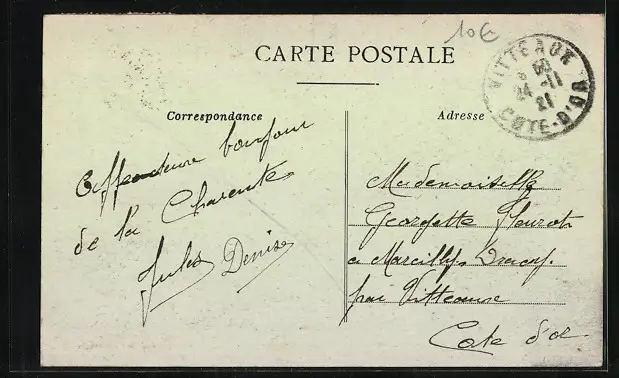 10€
CARTE POSTALE
VITTEAUX
24 -11
21
COTE-D'OR
Correspondance
Adresse
bonjour
de la Charente
Jules Denise
Mademoiselle
Georgette Fleurot
a Marcilly Dracy
par Vitteaux
Cote d'or